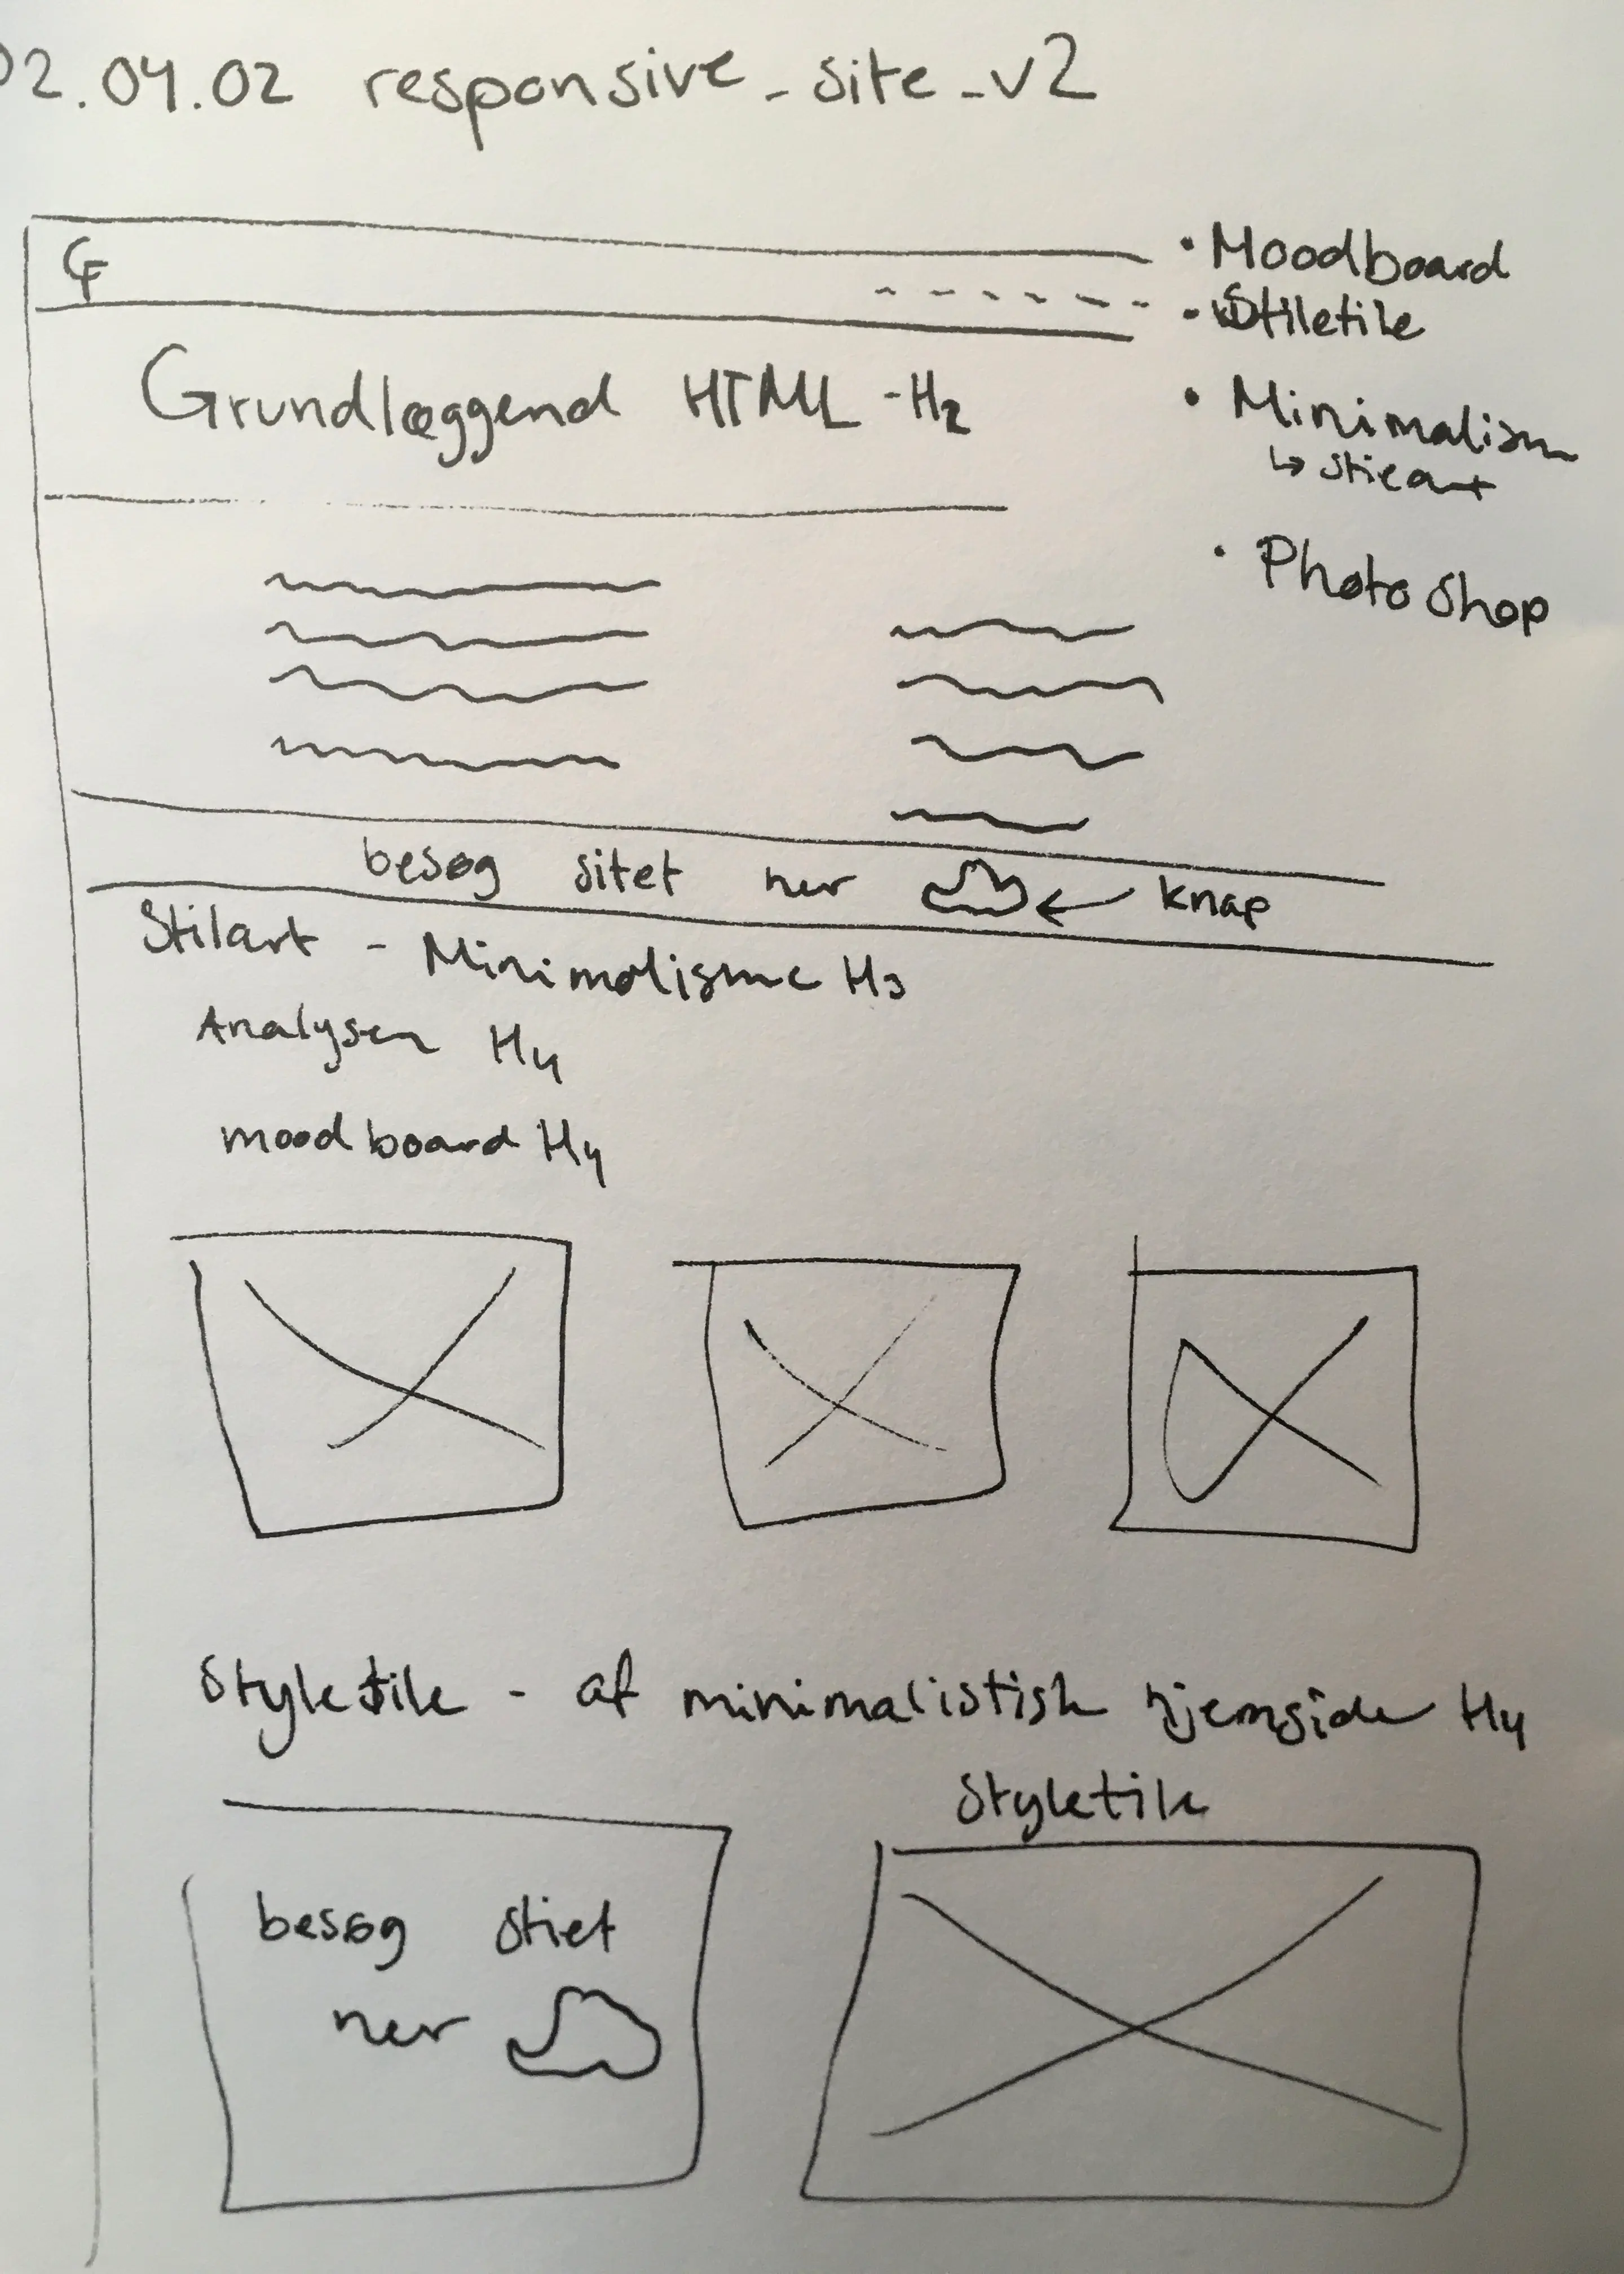 02.04.02 responsive_site_v2
CF
• Moodboard
• Stiletile
Grundlæggend HTML - H2
• Minimalism
↳ Stileart
• PhotoShop
besøg sitet her ← knap
Stilart - Minimalisme H3
Analysen H4
moodboard H4
Styletile - af minimalistisk hjemside H4
Styletile
besøg stiet
her